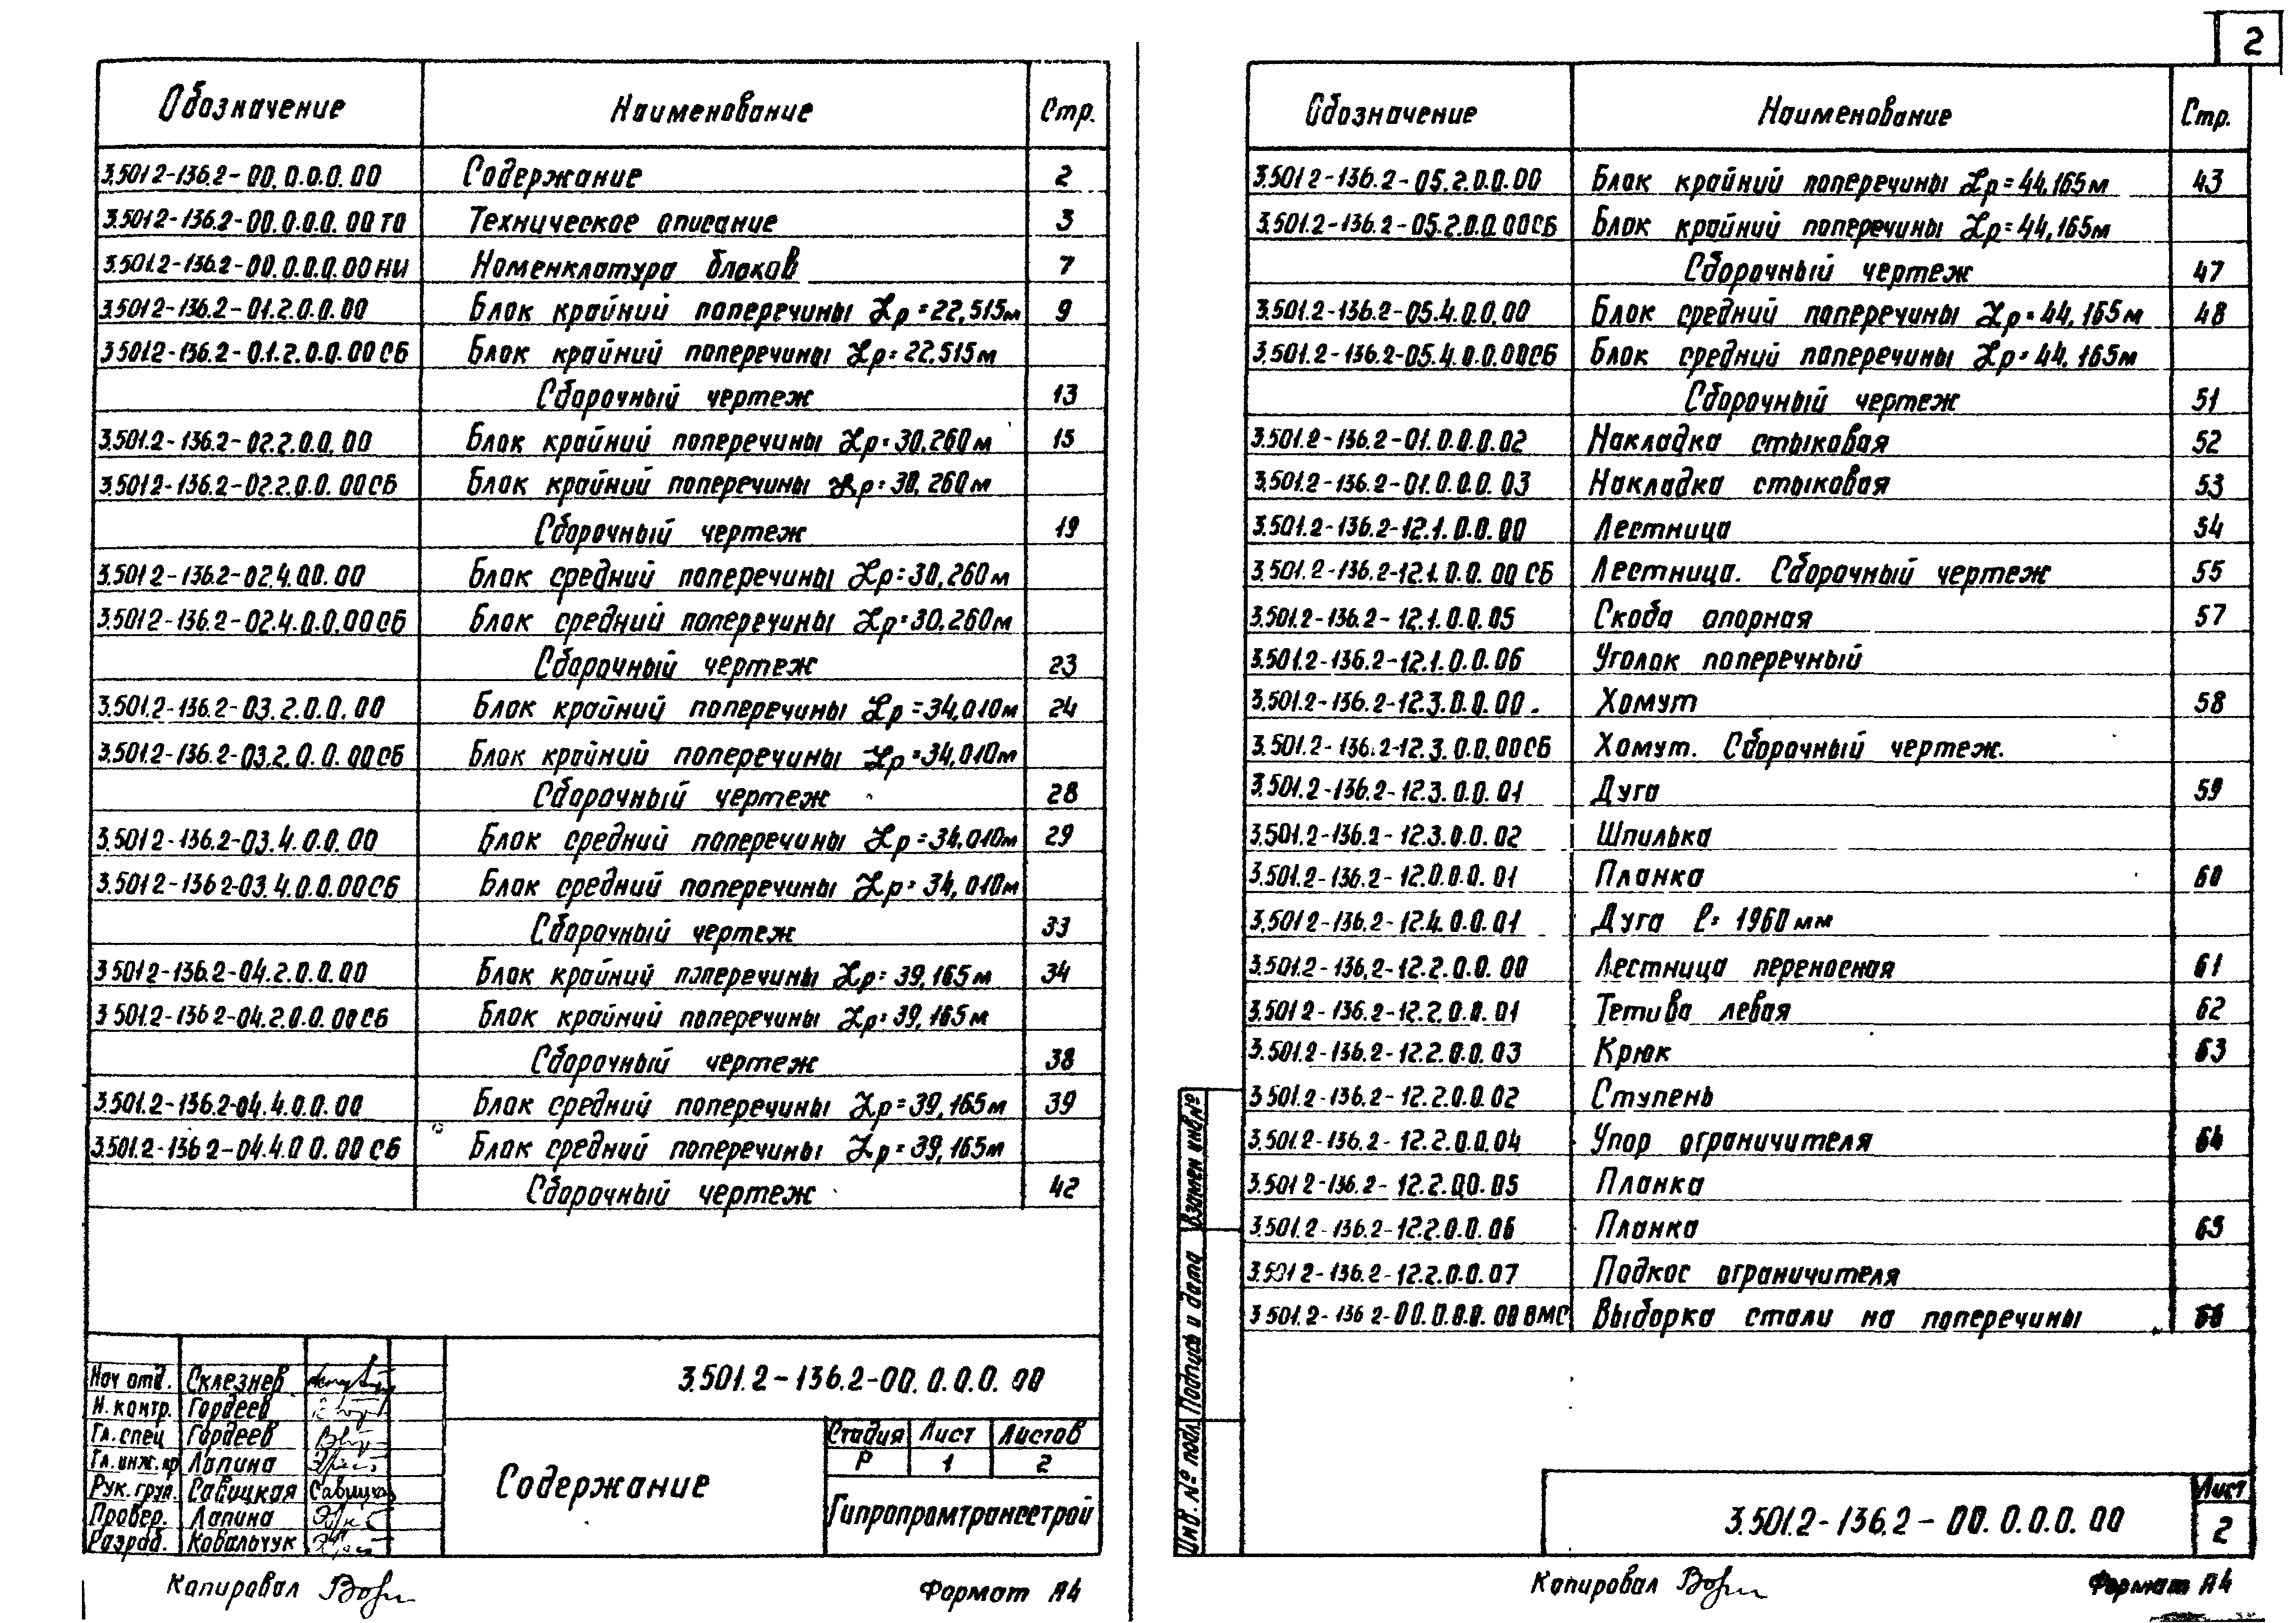 2
Обозначение Наименование Стр.
3.501.2-136.2-00.0.0.0.00 Содержание 2
3.501.2-136.2-00.0.0.0.00 ТО Техническое описание 3
3.501.2-136.2-00.0.0.0.00 НИ Номенклатура блоков 7
3.501.2-136.2-01.2.0.0.00 Блок крайний поперечины Lр=22,515м 9
3.501.2-136.2-0.1.2.0.0.00 СБ Блок крайний поперечины Lр=22.515м
Сборочный чертеж 13
3.501.2-136.2-02.2.0.0.00 Блок крайний поперечины Lр=30,260м 15
3.501.2-136.2-02.2.0.0.00СБ Блок крайний поперечины Lр=30,260м
Сборочный чертеж 19
3.501.2-136.2-02.4.00.00 Блок средний поперечины Lр=30,260м
3.501.2-136.2-02.4.0.0.00СБ Блок средний поперечины Lр=30.260м
Сборочный чертеж 23
3.501.2-136.2-03.2.0.0.00 Блок крайний поперечины Lр=34,010м 24
3.501.2-136.2-03.2.0.0.00СБ Блок крайний поперечины Lр=34,010м
Сборочный чертеж 28
3.501.2-136.2-03.4.0.0.00 Блок средний поперечины Lр=34,010м 29
3.501.2-136.2-03.4.0.0.00СБ Блок средний поперечины Lр=34,010м
Сборочный чертеж 33
3.501.2-136.2-04.2.0.0.00 Блок крайний поперечины Lр=39,165м 34
3.501.2-136.2-04.2.0.0.00СБ Блок крайний поперечины Lр=39,165м
Сборочный чертеж 38
3.501.2-136.2-04.4.0.0.00 Блок средний поперечины Lр=39,165м 39
3.501.2-136.2-04.4.0.0.00СБ Блок средний поперечины Lр=39,165м
Сборочный чертеж 42
3.501.2-136.2-00.0.0.0.00
Нач отд. Склезнев
Н. контр. Гордеев
Гл. спец Гордеев
Гл. инж. пр Лапина
Рук. груп. Савицкая Савицкая
Провер. Лапина
Разраб. Ковальчук
Содержание
Стадия Лист Листов
Р 1 2
Гипропромтрансстрой
Копировал
Формат А4
Обозначение Наименование Стр.
3.501.2-136.2-05.2.0.0.00 Блок крайний поперечины Lр=44,165м 43
3.501.2-136.2-05.2.0.0.00СБ Блок крайний поперечины Lр=44,165м
Сборочный чертеж 47
3.501.2-136.2-05.4.0.0.00 Блок средний поперечины Lр=44,165м 48
3.501.2-136.2-05.4.0.0.00СБ Блок средний поперечины Lр=44,165м
Сборочный чертеж 51
3.501.2-136.2-01.0.0.0.02 Накладка стыковая 52
3.501.2-136.2-01.0.0.0.03 Накладка стыковая 53
3.501.2-136.2-12.1.0.0.00 Лестница 54
3.501.2-136.2-12.1.0.0.00 СБ Лестница. Сборочный чертеж 55
3.501.2-136.2-12.1.0.0.05 Скоба опорная 57
3.501.2-136.2-12.1.0.0.06 Уголок поперечный
3.501.2-136.2-12.3.0.0.00. Хомут 58
3.501.2-136.2-12.3.0.0.00СБ Хомут. Сборочный чертеж.
3.501.2-136.2-12.3.0.0.01 Дуга 59
3.501.2-136.2-12.3.0.0.02 Шпилька
3.501.2-136.2-12.0.0.0.01 Планка 60
3.501.2-136.2-12.4.0.0.01 Дуга ℓ=1960мм
3.501.2-136.2-12.2.0.0.00 Лестница переносная 61
3.501.2-136.2-12.2.0.0.01 Тетива левая 62
3.501.2-136.2-12.2.0.0.03 Крюк 63
3.501.2-136.2-12.2.0.0.02 Ступень
3.501.2-136.2-12.2.0.0.04 Упор ограничителя 64
3.501.2-136.2-12.2.0.0.05 Планка
3.501.2-136.2-12.2.0.0.06 Планка 65
3.501.2-136.2-12.2.0.0.07 Подкос ограничителя
3.501.2-136.2-00.0.0.0.00 ВМС Выборка стали на поперечины 66
Инв. № подл. Подпись и дата Взамен инв.№
3.501.2-136.2-00.0.0.0.00
Лист
2
Копировал
Формат А4